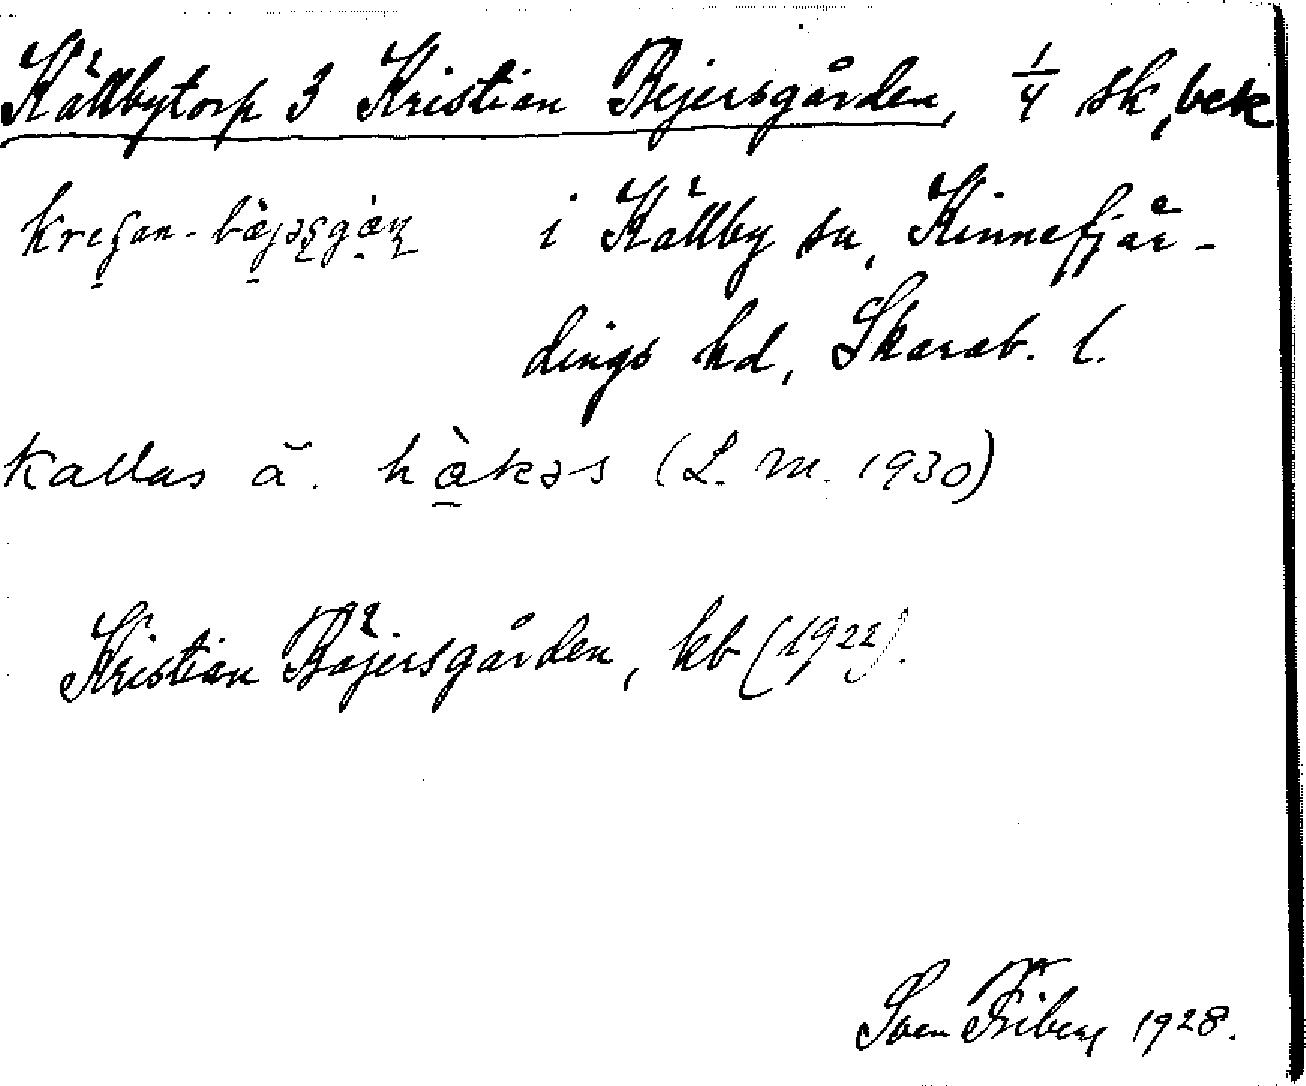 Källbytorp 3 Kristian Bejersgården, 1/4 sk, bek
i Källby sn, Kinnefjär-
dings hd, Skarab. l.
kallas ä. hàkəs (L. m. 1930)
Kristian Bäjersgården, kb (1922).
Sven Friberg 1928.